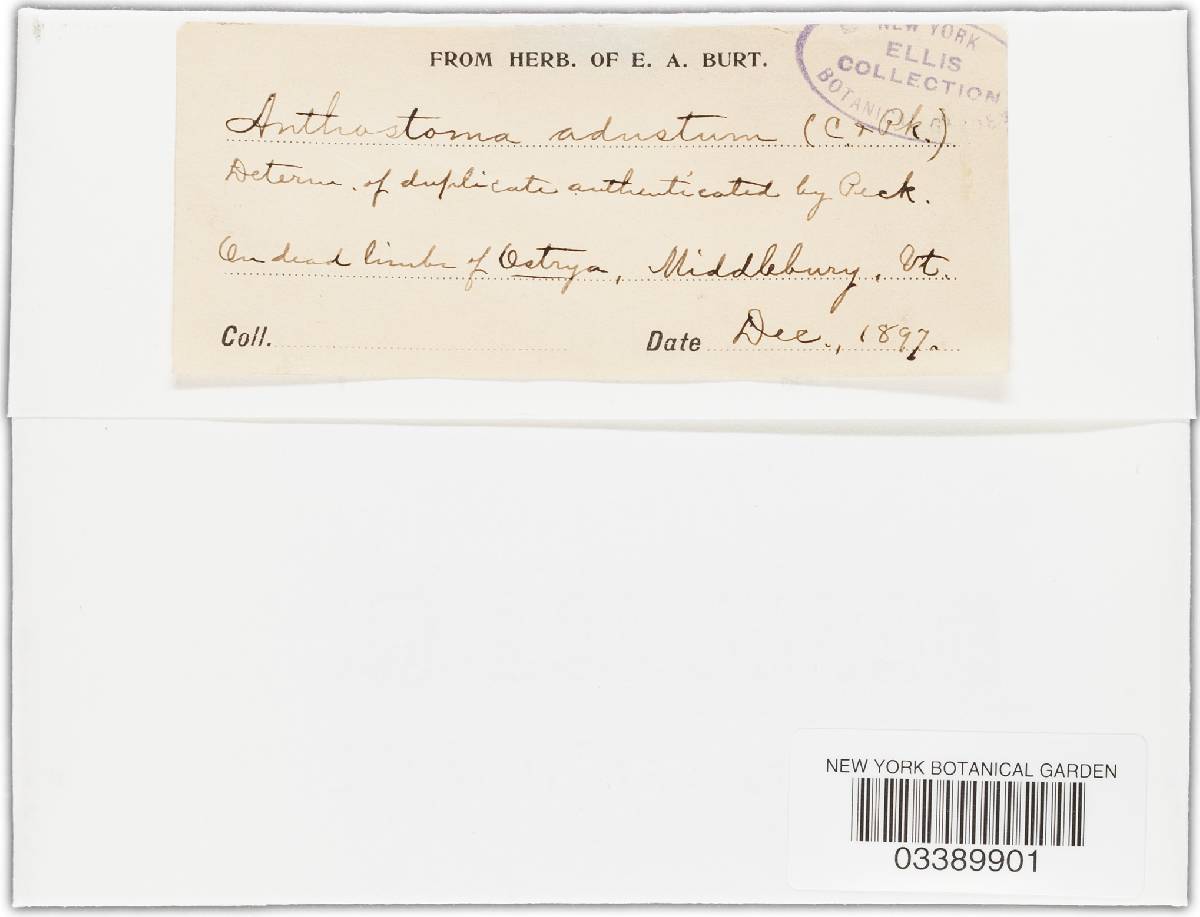 FROM HERB. OF E. A. BURT.
NEW YORK
ELLIS
COLLECTION
Anthostoma adustum (C. & Pk.)
Determ. of duplicate authenticated by Peck.
On dead limbs of Ostrya, Middlebury, Vt.
Coll. Date Dec., 1897.
NEW YORK BOTANICAL GARDEN
03389901